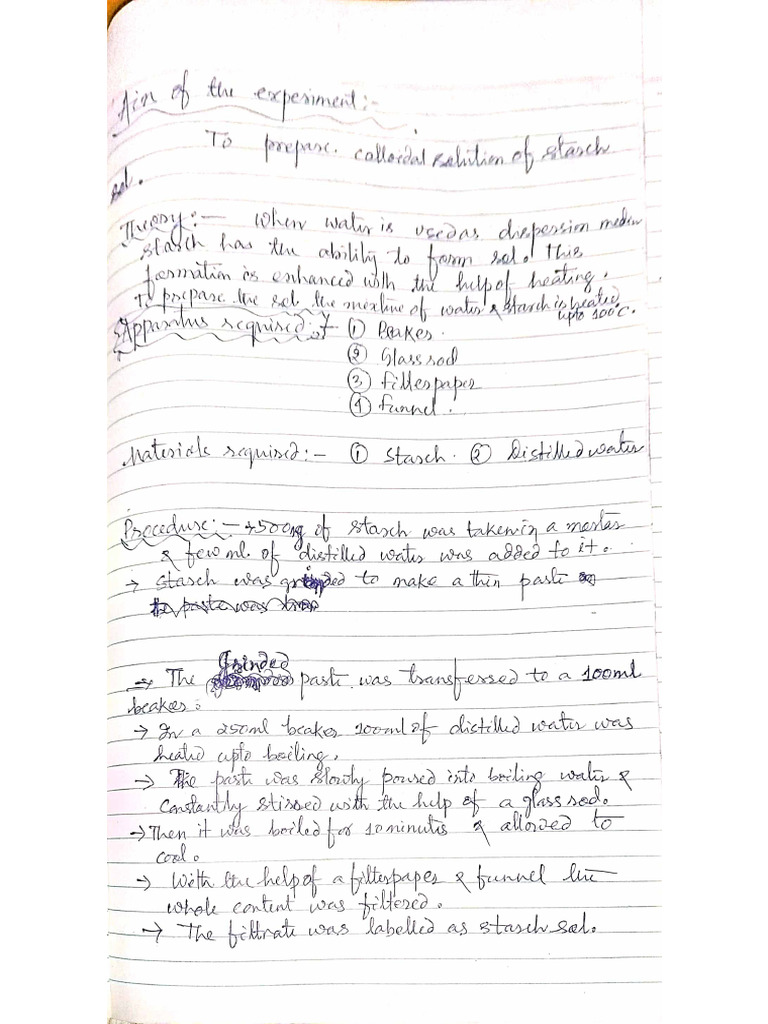 Aim of the experiment:-
To prepare colloidal solution of starch
sol.
Theory:- When water is used as dispersion medium
starch has the ability to form sol. This
formation is enhanced with the help of heating.
To prepare the sol the mixture of water & starch is heated
upto 100°C.
Apparatus required:- ① Beaker.
② Glass rod
③ filter paper
④ funnel.
Materials required:- ① Starch. ② Distilled water
Procedure:- → 500mg of starch was taken in a mortar
& few ml. of distilled water was added to it.
→ Starch was grinded to make a thin paste
Grinded
→ The paste was transferred to a 100ml
beaker.
→ In a 250ml beaker 100ml of distilled water was
heated upto boiling.
→ The paste was slowly poured into boiling water &
constantly stirred with the help of a glass rod.
→ Then it was boiled for 10 minutes & allowed to
cool.
→ With the help of a filter paper & funnel the
whole content was filtered.
→ The filtrate was labelled as starch sol.